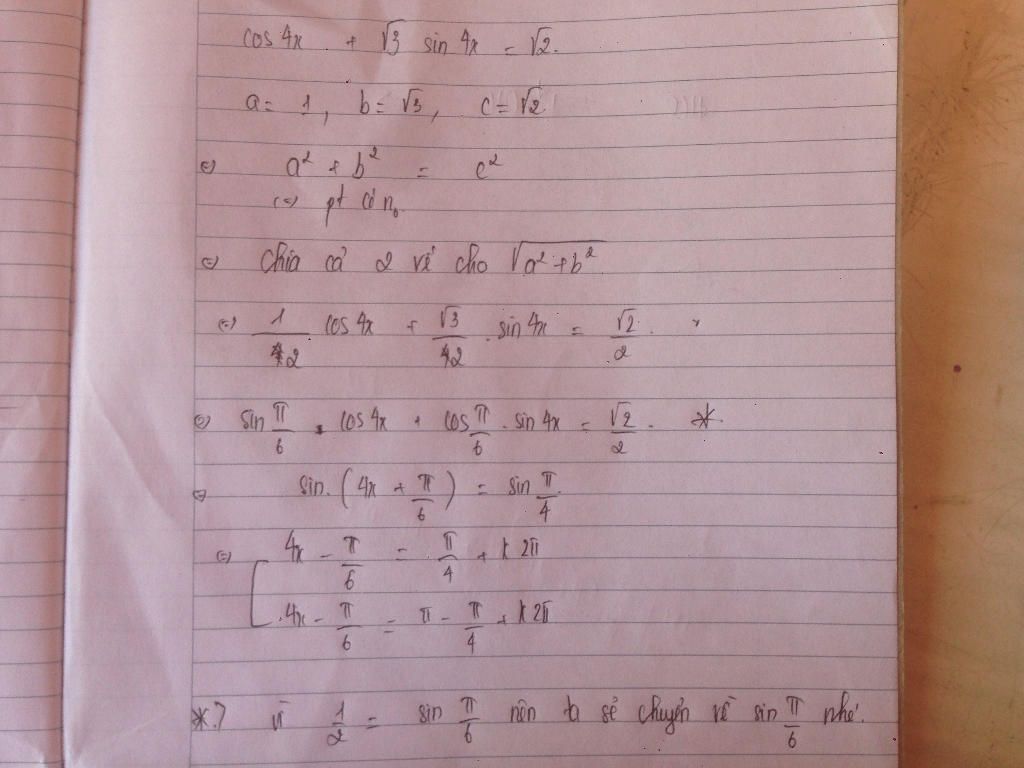 cos 4x + √3 sin 4x = √2.
a = 1, b = √3, c = √2
(=) a² + b² = c²
(=) pt có n₀.
(=) Chia cả 2 vế cho √(a² + b²)
(=) 1/2 cos 4x + √3/2 . sin 4x = √2/2.
(=) sin π/6 . cos 4x + cos π/6 . sin 4x = √2/2. *
(=) sin. (4x + π/6) = sin π/4.
(=) [ 4x - π/6 = π/4 + k2π
4x - π/6 = π - π/4 + k2π
*? Vì 1/2 = sin π/6 nên ta sẽ chuyển về sin π/6 nhé.